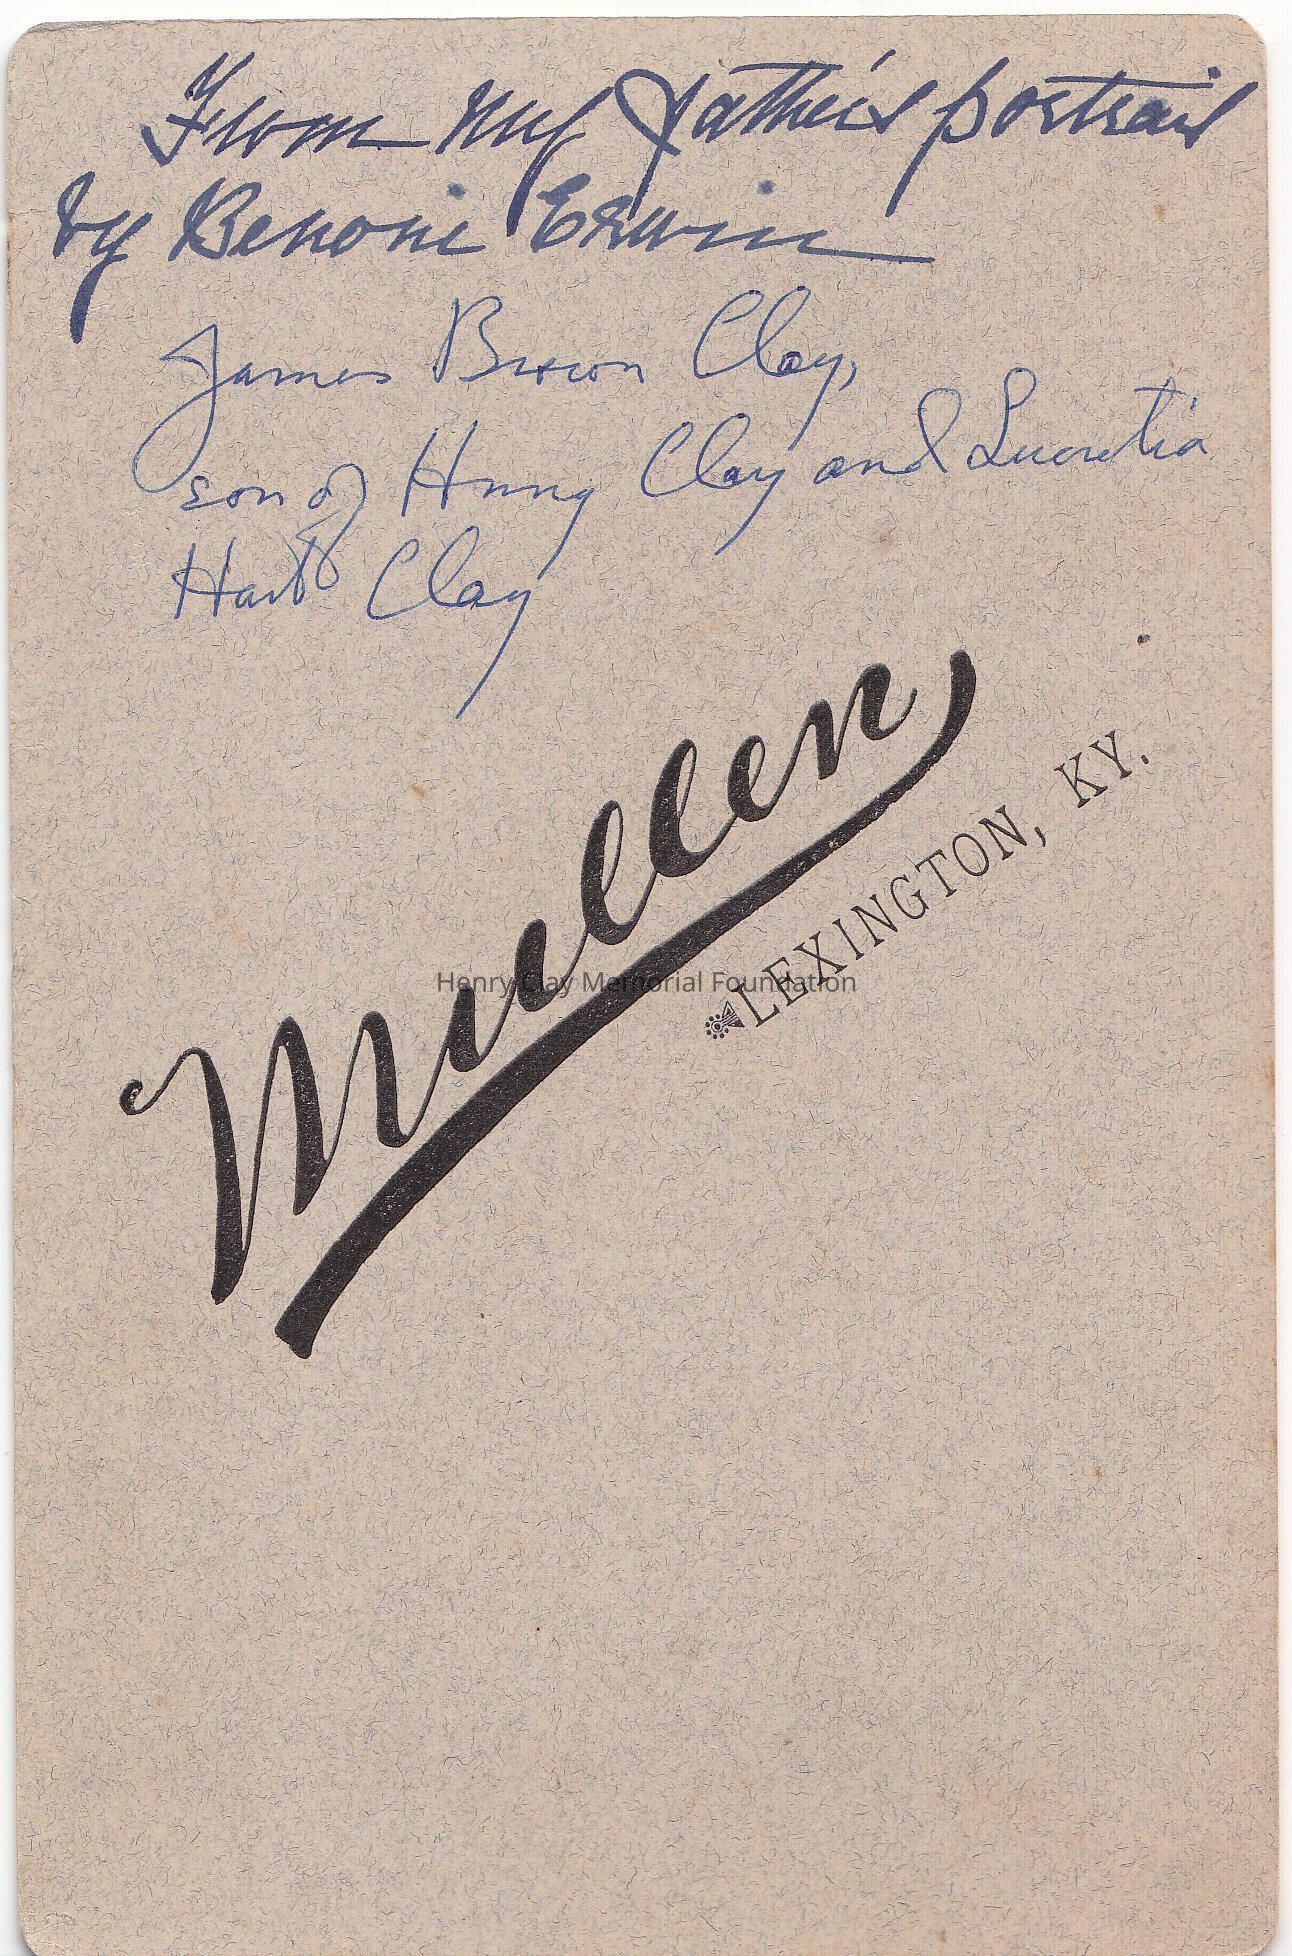 From my father's portrait
by Benoni Erwin
James Brown Clay,
son of Henry Clay and Lucretia
Hart Clay
Mullen
LEXINGTON, KY.
Henry Clay Memorial Foundation